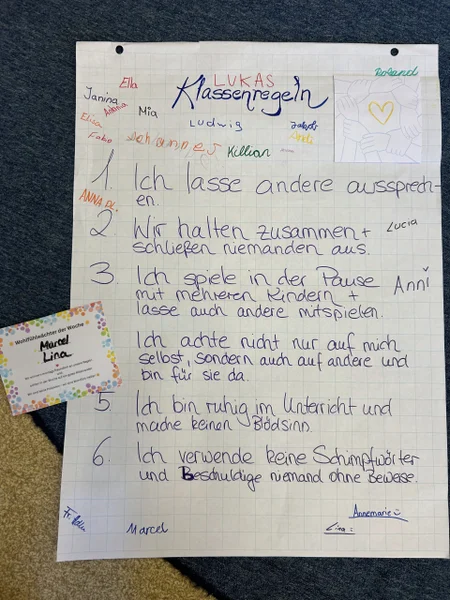 Roland
LUKAS
Ella
Klassenregeln
Janina
Mia
Ludwig
Elisa
Johannes
Killian
1. Ich lasse andere aussprech-
en.
ANNA.
2 Wir halten zusammen +
schließen niemanden aus.
Lucia
3. Ich spiele in der Pause
mit mehreren Kindern +
lasse auch andere mitspielen.
Anni
Wohlfühlwächter der Woche
Marcel
Lina
Ich achte nicht nur auf mich
selbst, sondern auch auf andere und
bin für sie da.
5. Ich bin ruhig im Unterricht und
mache keinen Blödsinn.
6. Ich verwende keine Schimpfwörter
und Beschuldige niemand ohne Beweise.
Annemarie
Marcel
Lina